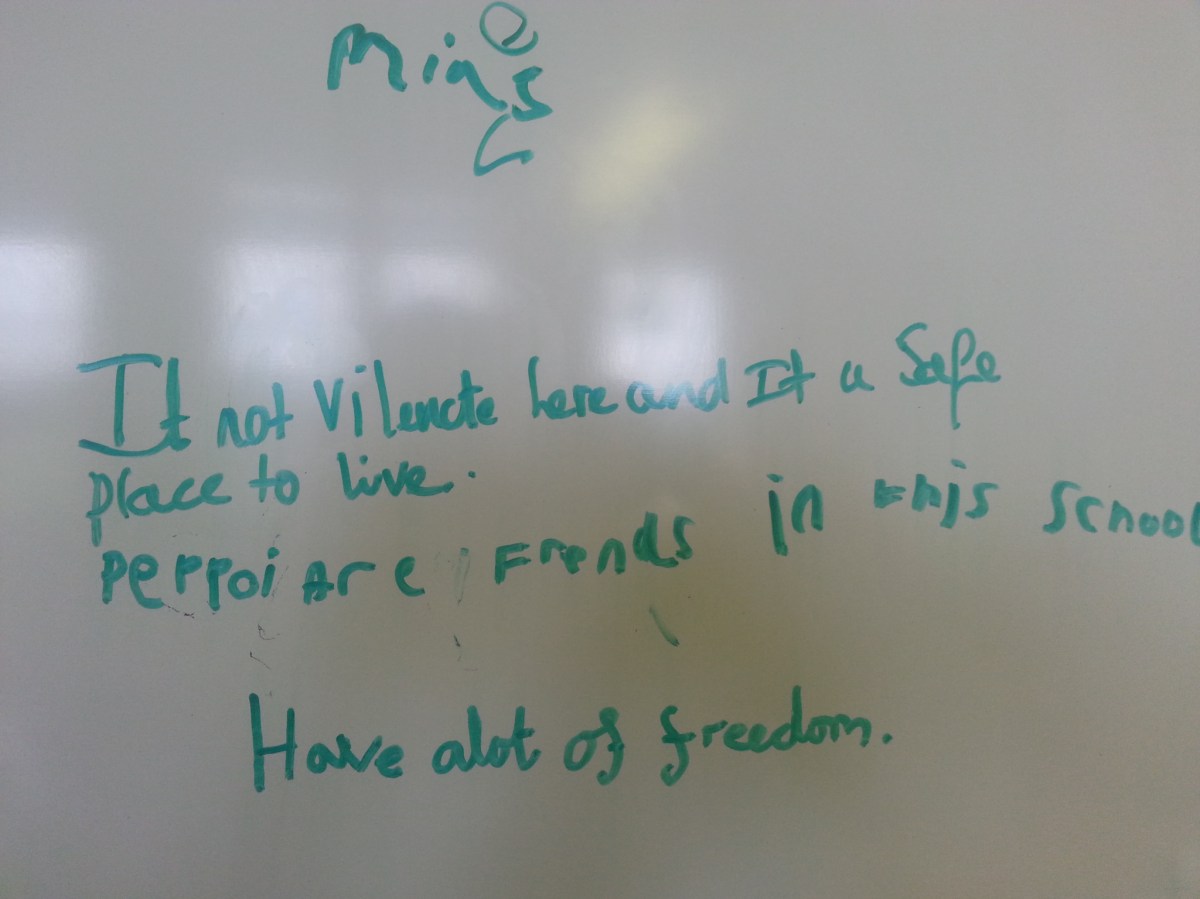 It not Vilencte here and It a Safe
place to live.
perpoi Are Frends in this school
Have alot of freedom.